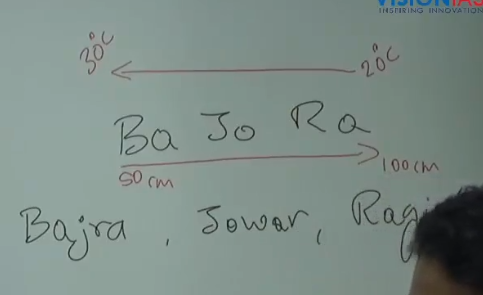 VISIONIAS
INSPIRING INNOVATION
30°C 20°C
Ba Jo Ra
50 cm 100 cm
Bajra, Jowar, Ragi